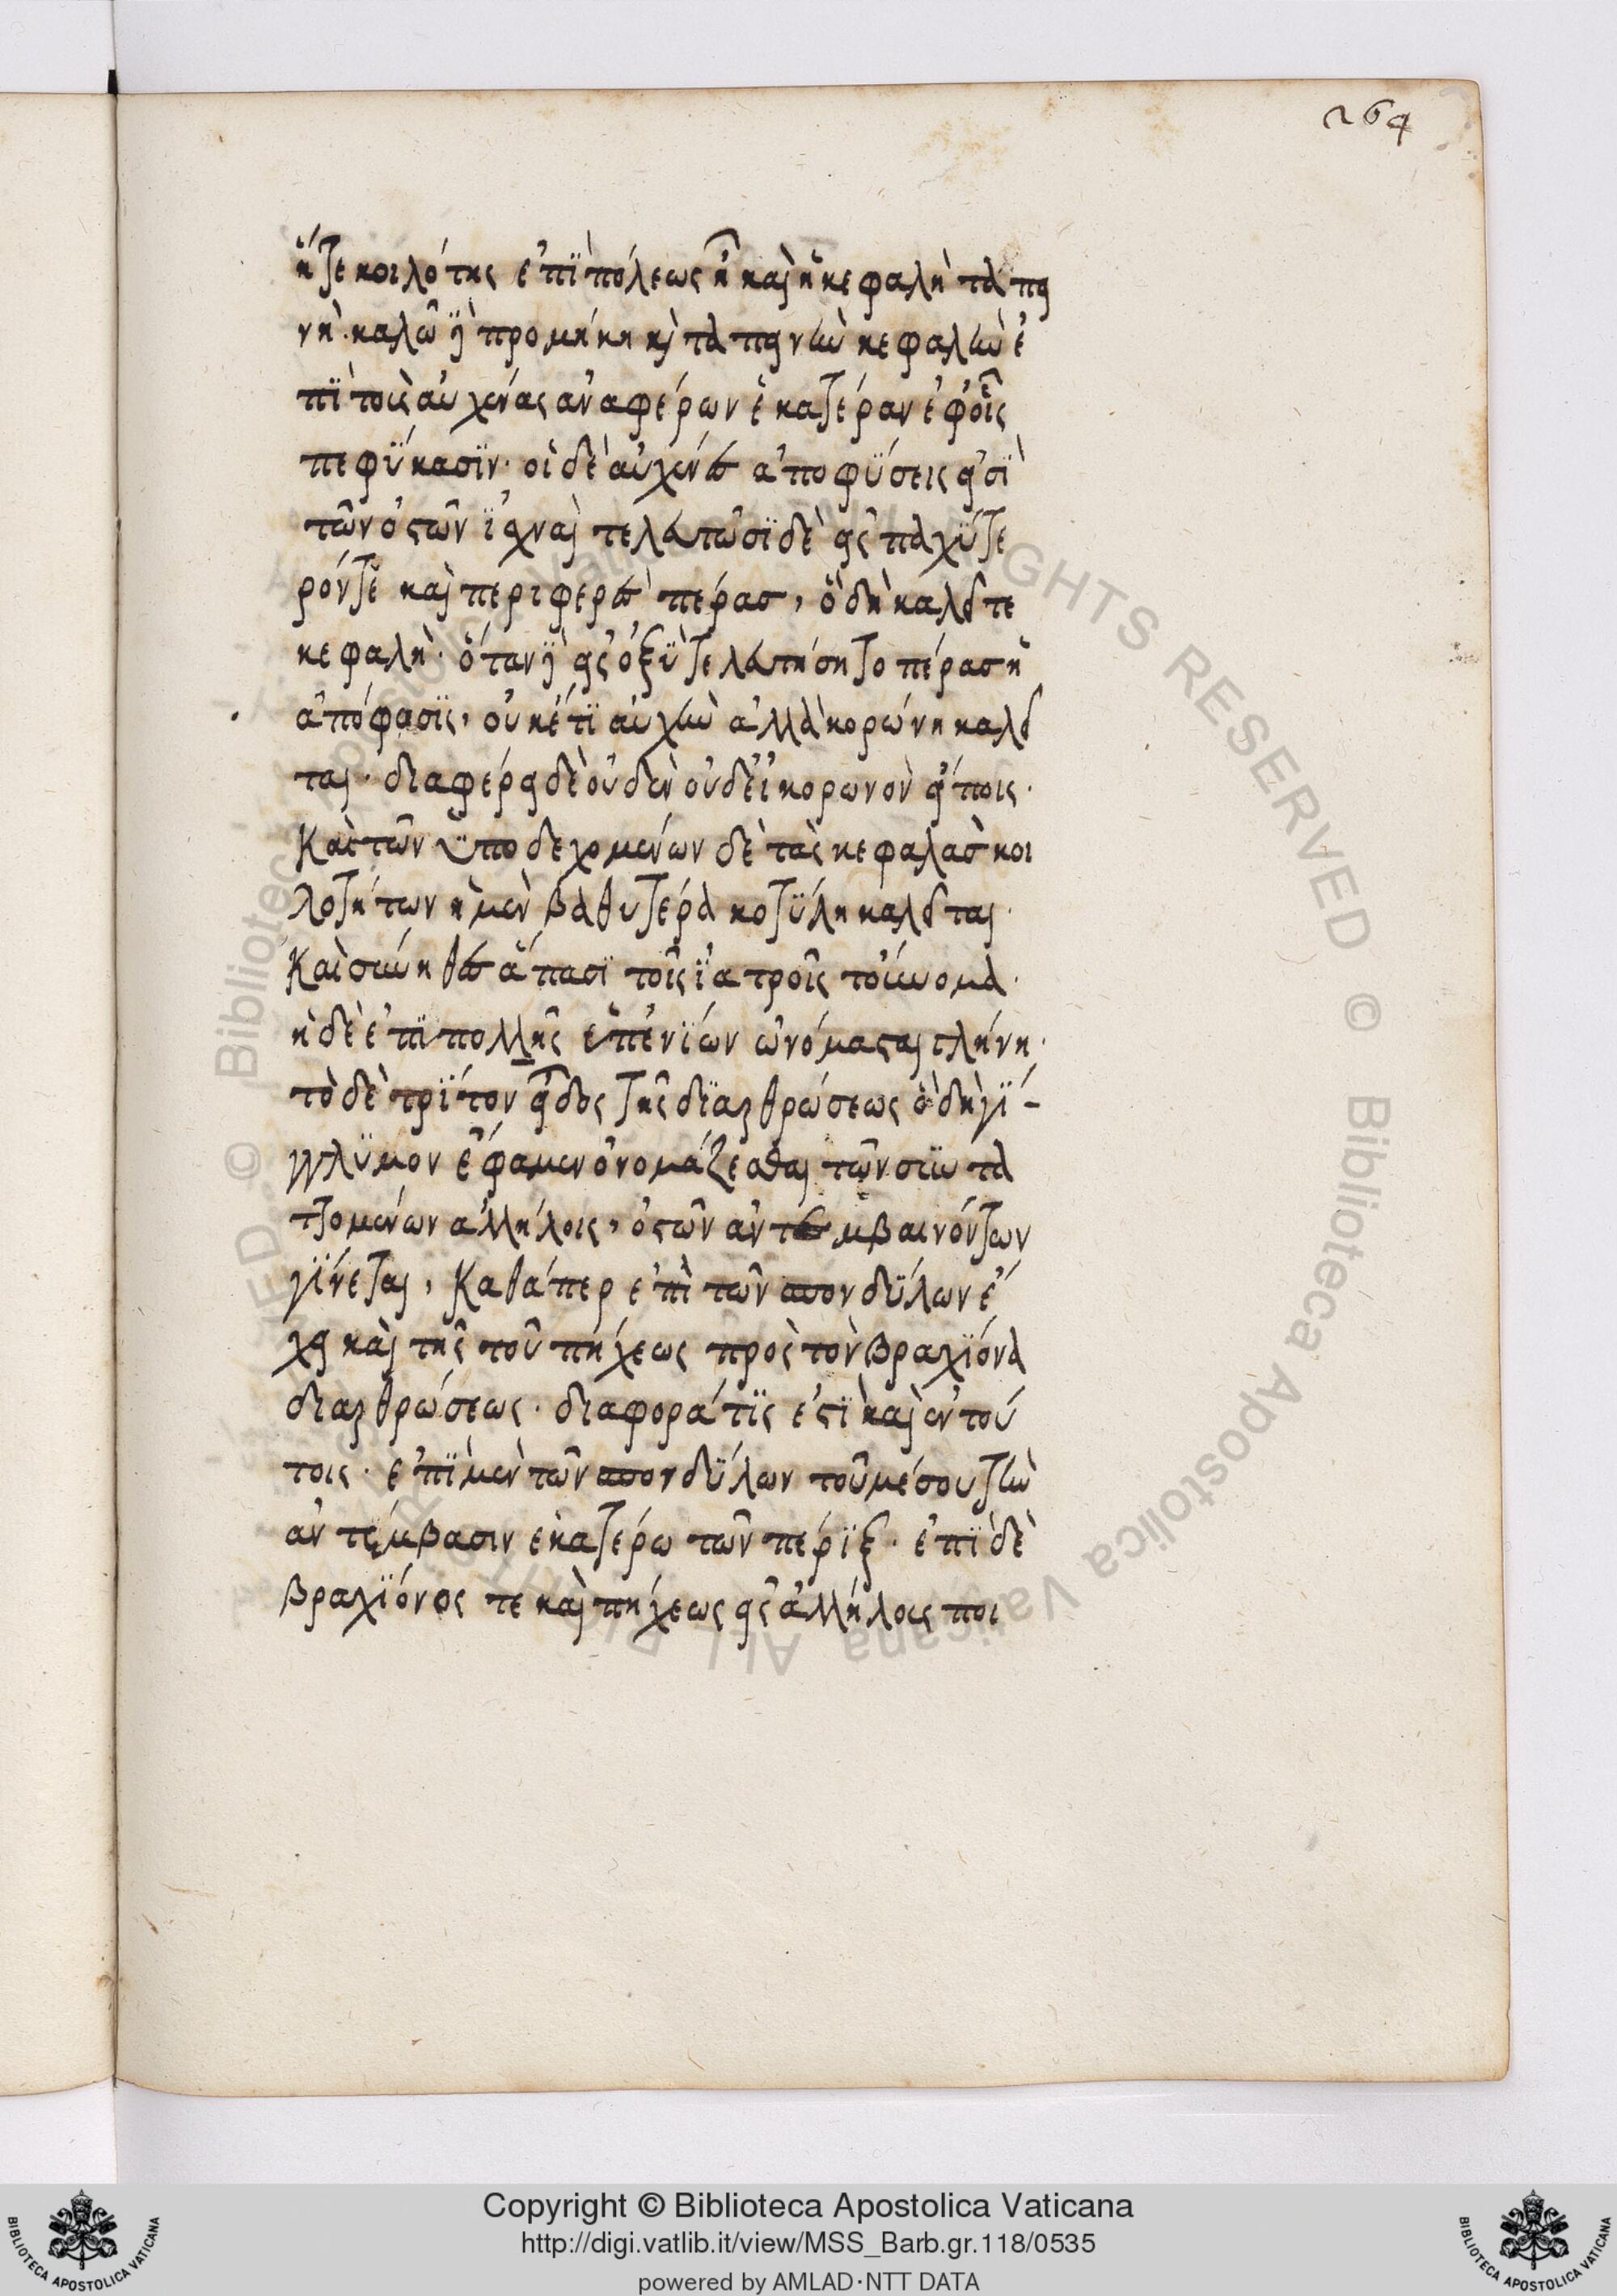 264
ἥτε κοιλότης ἐπϊπόλεως ἢ καὶ ἡ κεφαλὴ ταπει
νὴ· καλῶ γὰρ προμήκη καὶ ταπεινὴν κεφαλὴν ἐ
πϊ τοὺς αὐχένας ἀναφέρων ἑκατέραν ἐφ' οἷς
πεφΰκασϊν· οἱ δὲ αὐχένες ἀποφΰσεις εἰσϊ
τῶν ὀστῶν ϊσχναὶ τελευτῶσϊ δὲ εἰς παχΰτε
ρόντε καὶ περιφερὲς πέρασ, ὃ δὴ καλεῖτε
κεφαλὴ· ὅταν γὰρ εἰς ὀξϋ τελευτήση το πέρασ ἡ
ἀπόφασϊς, οὐκέτϊ αὐχὴν ἀλλὰ κορώνη καλεῖ
ται· διαφέρει δὲ οὐδὲν οὐδ' εἰ κορωνὸν εἴποις·
Καὶ τῶν ϋποδεχομένων δὲ τὰς κεφαλὰσ κοι
λοτήτων ἡ μὲν βαθυτέρα κοτΰλη καλεῖται·
Καὶ συνήθες ἅπασϊ τοῖς ϊατροῖς τοὔνομα·
ἡ δὲ ἐπϊπολλῆς ἐπ' ἐνϊων ὠνόμασται γλήνη·
τὸ δὲ τρϊτον εἶδος τῆς δϊαρθρώσεως ὃ δὴ γί-
γγλϋμον ἔφαμεν ὀνομάζεσθαι τῶν συντα
ττομένων ἀλλήλοις, ὀστῶν ἀντεμβαινόντων
γϊνεται, Καθάπερ ἐπὶ τῶν σπονδΰλων ἔ
χει καὶ τῆς τοῦ πήχεως πρὸς τὸν βραχϊόνα
διαρθρώσεως· διαφορά τϊς ἐστϊ καὶ ἐν τού
τοις· ἐπϊ μὲν τῶν σπονδΰλων τοῦ μέσου τὴν
ἀντέμβασιν ἑκατέρω τῶν πέρϊξ· ἐπϊ δὲ
βραχϊόνος τε καὶ πήχεως εἰς ἀλλήλοις ποι
Copyright © Biblioteca Apostolica Vaticana
http://digi.vatlib.it/view/MSS_Barb.gr.118/0535
powered by AMLAD·NTT DATA